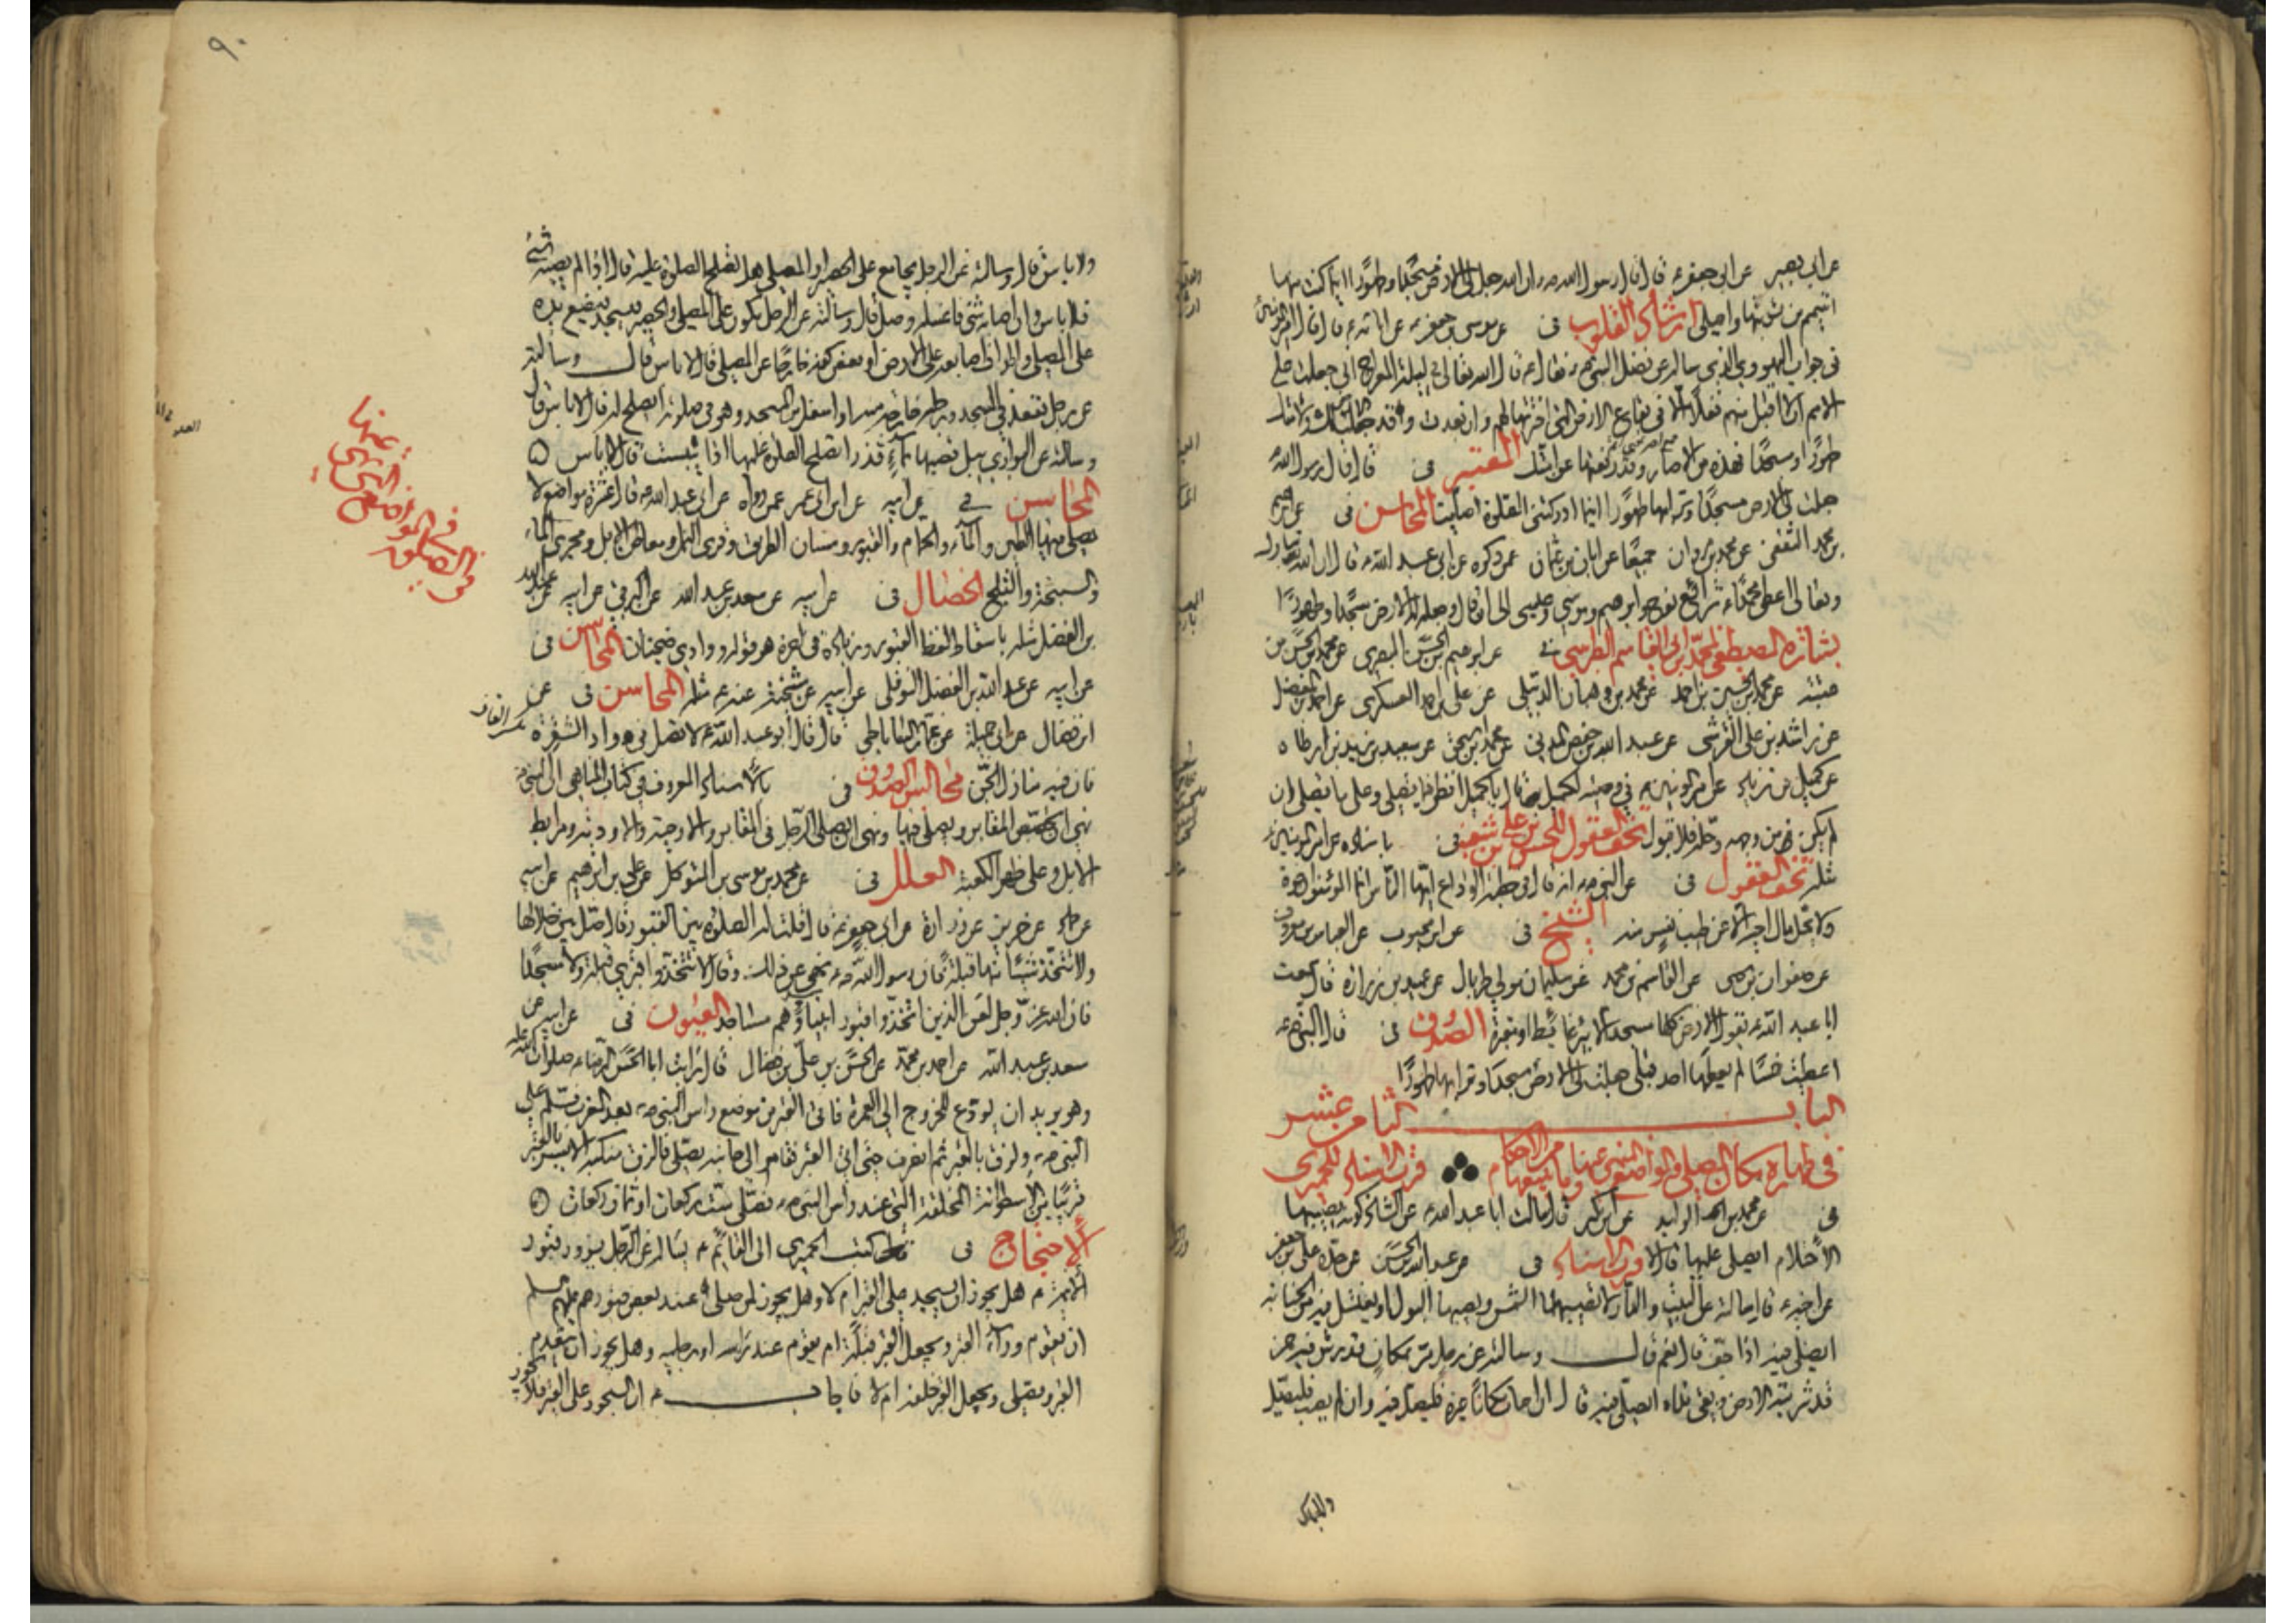 عن ابى بصير عن ابى جعفر ع قال قال رسول الله ص ان الله جعل لى الارض مسجدا وطهورا اينما كنت منها
اتيمم من تربتها واصلى ارشاد القلوب فى عن موسى بن جعفر ع عن ابائه ع قال قال امير المؤمنين
فى جواب اليهودى الذى سأله عن فضل النبى ص فقال ع قال الله تعالى فى ليلة المعراج انى جعلت على
الامم ان لا اقبل منهم فعلا الا فى بقاع الارض التى اخترتها لهم وان بعدت وقد جعلت الارض لك ولامتك
طهورا ومسجدا فهذه من الاصار وقد رفعتها عن امتك المعتبر فى قال قال رسول الله
جعلت لى الارض مسجدا وترابها طهورا اينما ادركتنى الصلوة صليت المحاسن فى عن ابرهيم
بن محمد الثقفى عن محمد بن مروان جميعا عن ابان بن عثمان عمن ذكره عن ابى عبد الله ع قال ان الله تبارك
وتعالى اعطى محمدا ص شرائع نوح وابرهيم وموسى وعيسى الى ان قال وجعل له الارض مسجدا وطهورا
بشارة المصطفى لمحمد بن ابى القاسم الطبرسى فى عن ابرهيم بن الحسن البصرى عن محمد بن الحسن بن
عتبة عن محمد بن الحسين بن احمد عن محمد بن وهبان الدبيلى عن على بن احمد العسكرى عن احمد بن المفضل
عن راشد بن على القرشى عن عبد الله بن حفص المدنى عن محمد بن اسحق عن سعيد بن زيد بن ارطاه
عن كميل بن زياد عن امير المؤمنين ع فى وصيته لكميل قال يا كميل انظر فيما تصلى وعلى ما تصلى ان
لم يكن من وجهه وحله فلا قبول تحف العقول للحسن بن على بن شعبة فى باسناده عن امير المؤمنين ع
مثله تحف العقول فى عن النبى ص انه قال فى خطبة الوداع ايها الناس انما المؤمنون اخوة
ولا يحل مال اخيه الا عن طيب نفس منه الشيخ فى عن ابن محبوب عن العباس بن معروف
عن صفوان بن يحيى عن القاسم بن محمد عن سليمان مولى طربال عن عبيد بن زرارة قال سمعت
ابا عبد الله ع يقول الارض كلها مسجد الا بئر غائط او مقبرة الصدوق فى قال النبى ص
اعطيت خمسا لم يعطها احد قبلى جعلت لى الارض مسجدا وترابها طهورا
الباب الثامن عشر
فى طهارة مكان المصلى والمواضع المنهى عنها وما يتبعها من الاحكام قرب الاسناد للحميرى
فى عن محمد بن الوليد عن ابن بكير قال سالت ابا عبد الله ع عن الشاذكونة يصيبها
الاحتلام ايصلى عليها قال لا قرب الاسناد فى عن عبد الله بن الحسن عن جده على بن جعفر
عن اخيه ع قال سالته عن البيت والدار لا تصيبهما الشمس ويصيبهما البول او يغتسل فيه من الجنابة
ايصلى فيه اذا جف قال نعم قال وسالته عن رجل مر بمكان قد رش فيه خمر
قد شربته الارض وبقى نداه ايصلى فيه قال ان اصاب مكانا غيره فليصل فيه وان لم يصب فليصل
ولا باس
ولا باس قال وسالته عن الرجل يجامع على الحصير او المصلى هل تصلح الصلوة عليه قال اذا لم يصبه شئ
فلا باس وان اصابه شئ فاغسله وصل قال وسالته عن الرجل يكون على المصلى والحصير فيسجد فيضع يده
على المصلى واطراف اصابعه على الارض او بعض كفه خارجا عن المصلى قال لا باس قال وسالته
عن رجل يقعد فى المسجد ورجله خارجة منه او اسفل من المسجد وهو فى صلوته ايصلح له قال لا باس قال
وسالته عن البوارى يبل قصبها بماء قذر اتصلح الصلوة عليها اذا يبست قال لا باس
المحاسن فى عن ابيه عن ابن ابى عمير عمن رواه عن ابى عبد الله ع قال عشرة مواضع لا
يصلى فيها الطين والماء والحمام والقبور ومسان الطريق وقرى النمل ومعاطن الابل ومجرى الماء
والسبخة والثلج الخصال فى عن ابيه عن سعد بن عبد الله عن البرقى عن ابيه عن عبد الله
بن الفضل مثله باسقاط لفظ القبور وزيادة فى اخره هو قوله ووادى ضجنان المحاسن فى
عن ابيه عن عبد الله بن الفضل النوفلى عن ابيه عن مشيخته عنه ع مثله المحاسن فى عن
ابن فضال عن ابى جميلة عن عمار الساباطى قال قال ابو عبد الله ع لا تصل فى واد الشقرة
بكسر القاف
فان فيه منازل الجن مجالس الصدوق فى بالاسناد المعروف فى كتاب المناهى ان النبى ص
نهى ان تجصص المقابر ويصلى فيها ونهى ان يصلى الرجل فى المقابر والارحية والاودية ومرابط
الابل وعلى ظهر الكعبة العلل فى عن محمد بن موسى بن المتوكل عن على بن ابرهيم عن ابيه
عن حماد عن حريز عن زرارة عن ابى جعفر ع قال قلت له الصلوة بين القبور قال صل بين خلالها
ولا تتخذ شيئا منها قبلة فان رسول الله ص نهى عن ذلك وقال لا تتخذوا قبرى قبلة ولا مسجدا
فان الله عز وجل لعن الذين اتخذوا قبور انبيائهم مساجد العيون فى عن ابيه عن
سعد بن عبد الله عن احمد بن محمد عن الحسن بن على بن فضال قال رايت ابا الحسن الرضا ع صلوات الله عليه
وهو يريد ان يودع للخروج الى العمرة فاتى القبر من موضع راس النبى ص بعد المغرب فسلم على
النبى ص ولزق بالقبر ثم انصرف حتى اتى القبر فقام الى جانبه يصلى فالزق منكبه الايسر بالقبر
قريبا من الاسطوانة المخلقة التى عند راس النبى ص فصلى ست ركعات او ثمان ركعات
الاحتجاج فى كتب الحميرى الى القائم ع يساله عن الرجل يزور قبور
الائمة ع هل يجوز ان يسجد على القبر ام لا وهل يجوز لمن صلى عند بعض قبورهم عليهم السلم
ان يقوم وراء القبر ويجعل القبر قبلة ام يقوم عند راسه او رجليه وهل يجوز ان يتقدم
القبر ويصلى ويجعل القبر خلفه ام لا فاجاب ع ان السجود على القبر فلا يجوز
فى الصلوة
فى المواضع
التى نهى
عنها
٩٠